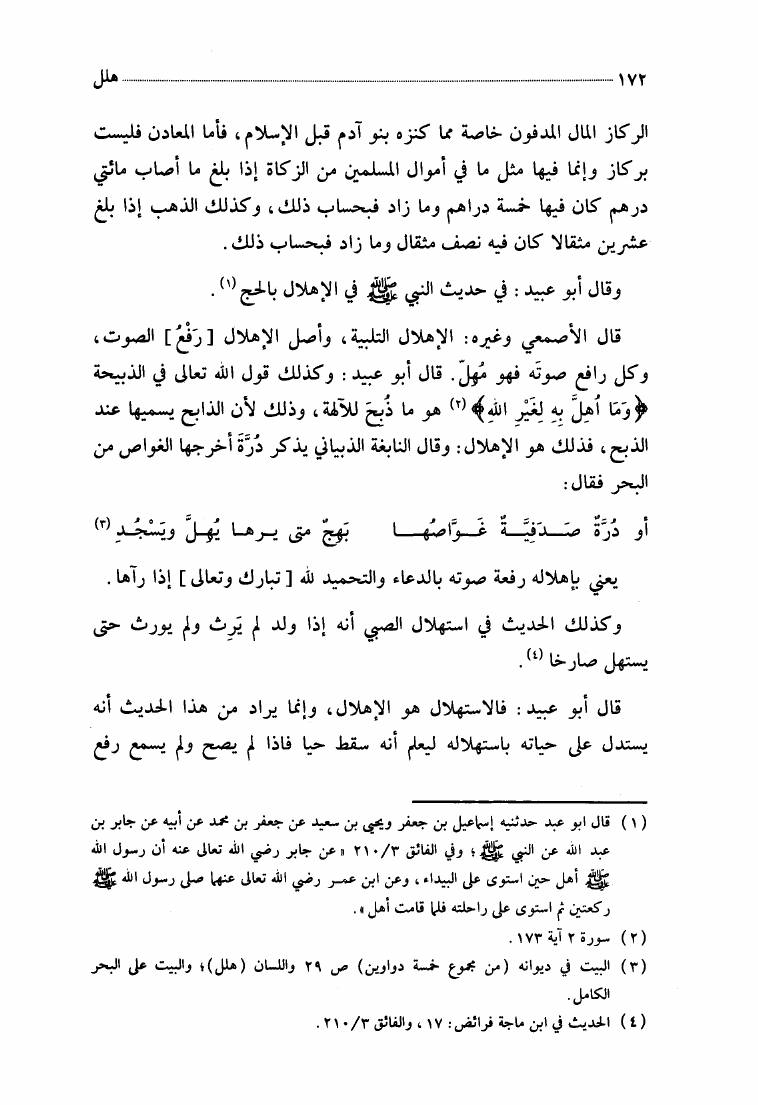 ١٧٢ هلل
الركاز المال المدفون خاصة مما كنزه بنو آدم قبل الإسلام، فأما المعادن فليست
بركاز وإنما فيها مثل ما في أموال المسلمين من الزكاة إذا بلغ ما أصاب مائتي
درهم كان فيها خمسة دراهم وما زاد فبحساب ذلك، وكذلك الذهب إذا بلغ
عشرين مثقالا كان فيه نصف مثقال وما زاد فبحساب ذلك.
وقال أبو عبيد: في حديث النبي ﷺ في الإهلال بالحج(١).
قال الأصمعي وغيره: الإهلال التلبية، وأصل الإهلال [رَفْعُ] الصوت،
وكل رافع صوتَه فهو مُهِلّ. قال أبو عبيد: وكذلك قول الله تعالى في الذبيحة
﴿وَمَا أُهِلَّ بِهِ لِغَيْرِ اللهِ﴾(٢) هو ما ذُبِحَ للآلهة، وذلك لأن الذابح يسميها عند
الذبح، فذلك هو الإهلال: وقال النابغة الذبياني يذكر دُرَّةً أخرجها الغواص من
البحر فقال:
أو دُرَّةٌ صَدَفِيَّةٌ غَوَّاصُها بَهِجٌ متى يرها يُهِلَّ ويَسْجُدِ(٣)
يعني بإهلاله رفعة صوته بالدعاء والتحميد لله [تبارك وتعالى] إذا رآها.
وكذلك الحديث في استهلال الصبي أنه إذا ولد لم يَرِث ولم يورث حتى
يستهل صارخا(٤).
قال أبو عبيد: فالاستهلال هو الإهلال، وإنما يراد من هذا الحديث أنه
يستدل على حياته باستهلاله ليعلم أنه سقط حيا فاذا لم يصح ولم يسمع رفع
(١) قال ابو عبد حدثنيه إسماعيل بن جعفر ويحيى بن سعيد عن جعفر بن محمد عن أبيه عن جابر بن
عبد الله عن النبي ﷺ؛ وفي الفائق ٢١٠/٣ «عن جابر رضي الله تعالى عنه أن رسول الله
ﷺ أهل حين استوى على البيداء، وعن ابن عمر رضي الله تعالى عنهما صلى رسول الله ﷺ
ركعتين ثم استوى على راحلته فلما قامت أهل».
(٢) سورة ٢ آية ١٧٣.
(٣) البيت في ديوانه (من مجموع خمسة دواوين) ص ٢٩ واللسان (هلل)؛ والبيت على البحر
الكامل.
(٤) الحديث في ابن ماجة فرائض: ١٧، والفائق ٢١٠/٣.